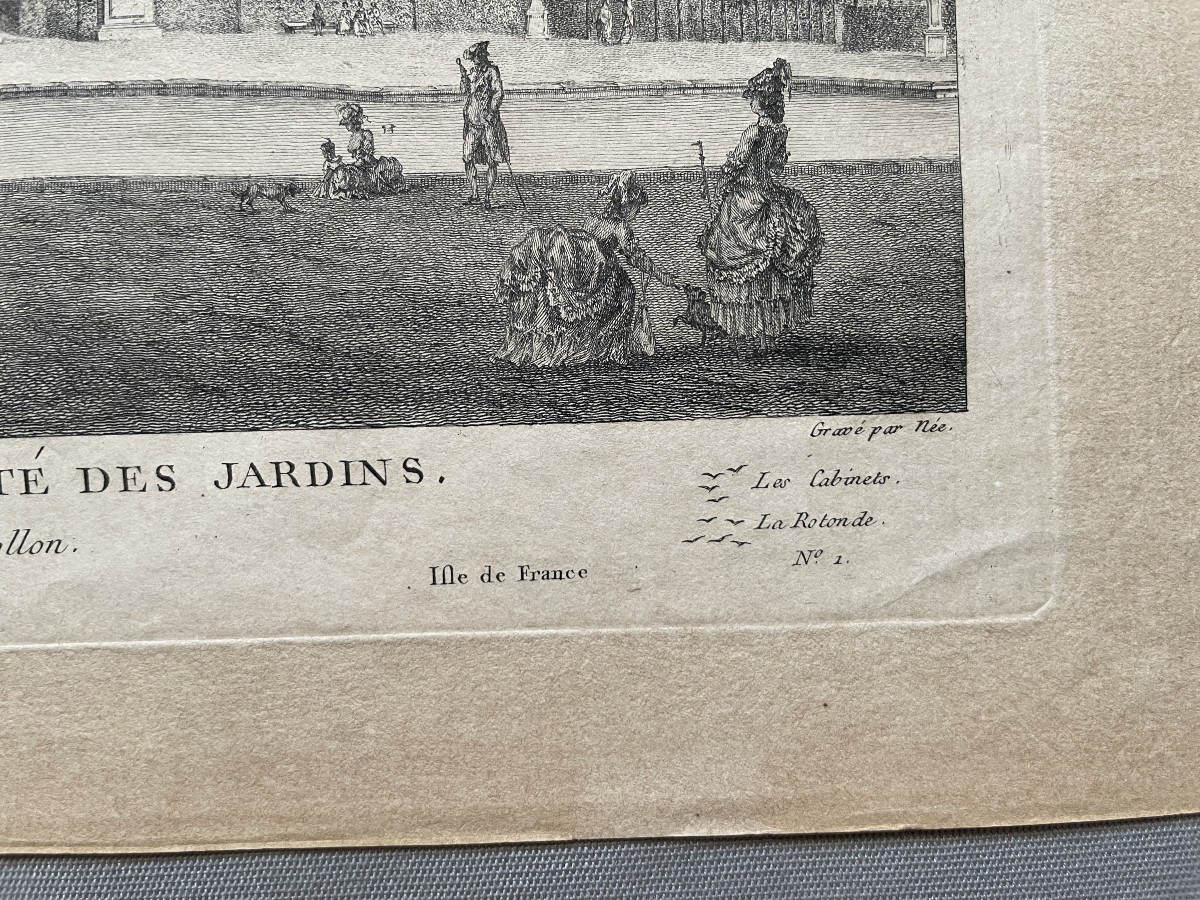 Gravé par Née.
TÉ DES JARDINS.
Les Cabinets.
La Rotonde.
N.º 1.
llon.
Iſle de France